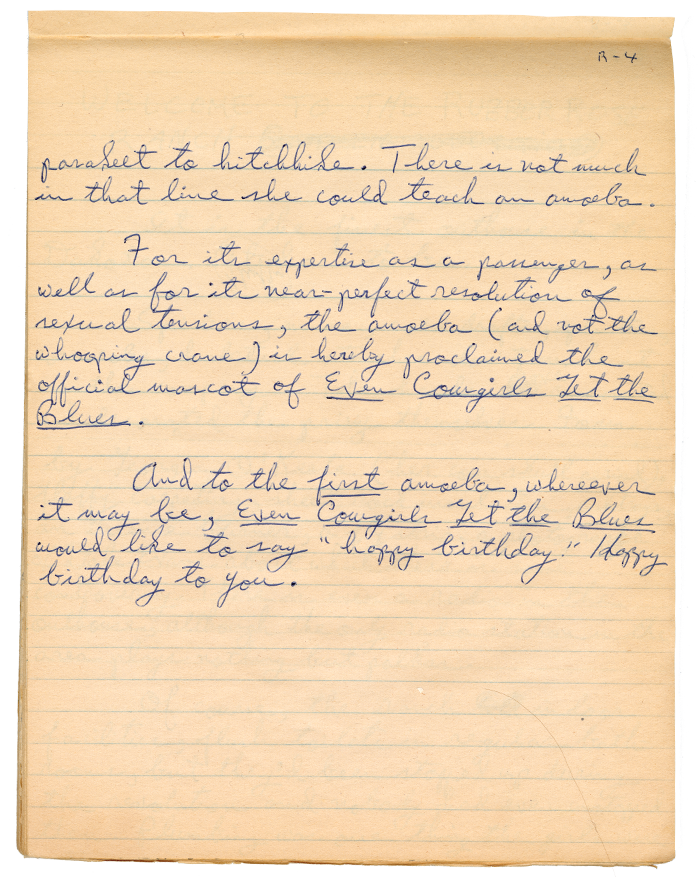 R-4
parakeet to hitchhike. There is not much
in that line she could teach an amoeba.
For its expertise as a passenger, as
well as for its near-perfect resolution of
sexual tensions, the amoeba (and not the
whooping crane) is hereby proclaimed the
official mascot of Even Cowgirls Get the
Blues.
And to the first amoeba, whereever
it may be, Even Cowgirls Get the Blues
would like to say "happy birthday." Happy
birthday to you.